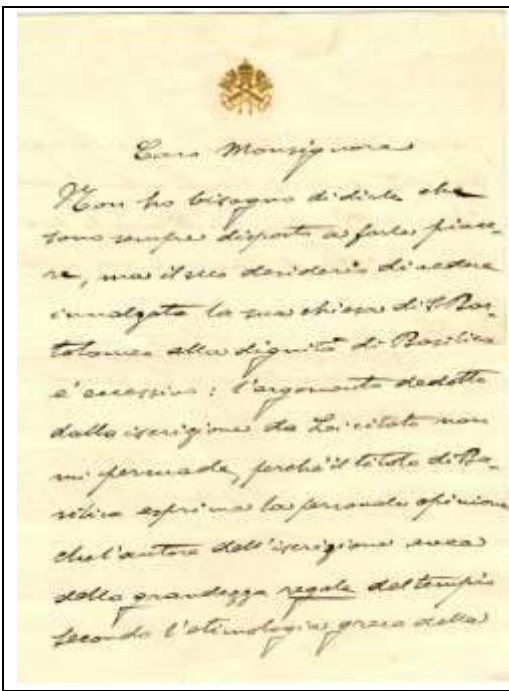 Caro Monsignore
Non ho bisogno di dirle che
sono sempre disposto a farle piace-
re, ma il suo desiderio di vedere
innalzata la sua chiesa di S. Bar-
tolomeo alla dignità di Basilica
e' eccessivo: l'argomento dedotto
dalla iscrizione da Lei citata non
mi persuade, perchè il titolo di Ba-
silica esprime la personale opinione
che l'autore dell'iscrizione aveva
della grandezza regale del tempio
secondo l'etimologia greca della